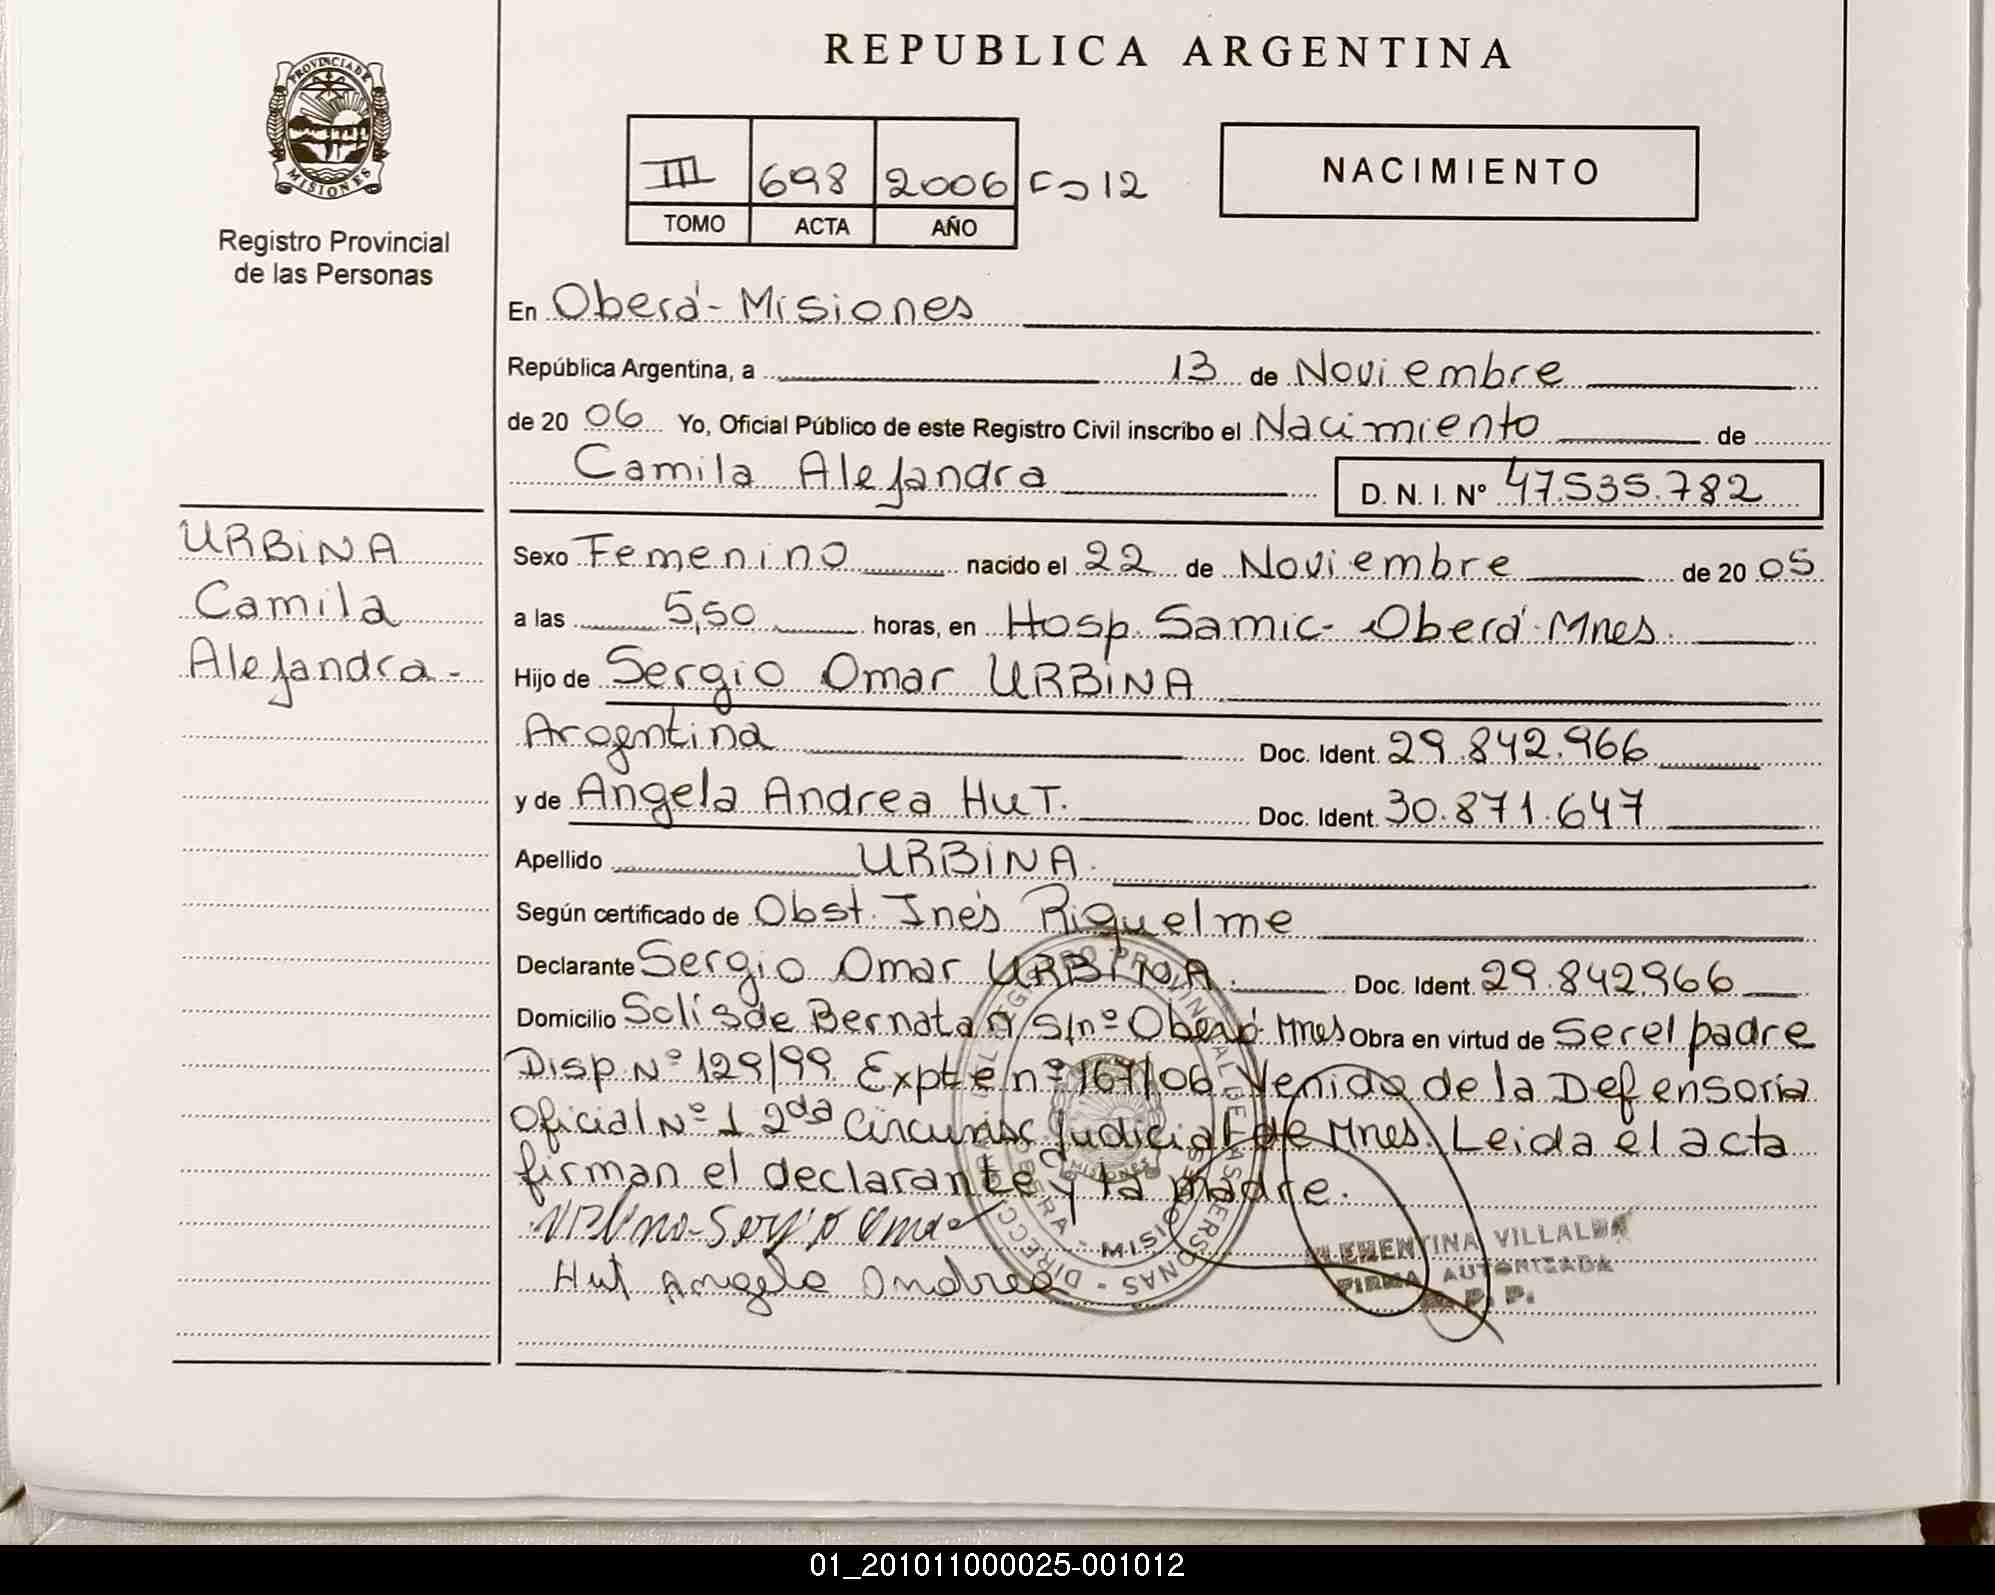 REPUBLICA ARGENTINA
PROVINCIA DE MISIONES
Registro Provincial
de las Personas
III 698 2006 Fº 12
TOMO ACTA AÑO
NACIMIENTO
En Oberá - Misiones
República Argentina, a 13 de Noviembre
de 20 06 Yo, Oficial Público de este Registro Civil inscribo el Nacimiento de
Camila Alejandra D. N. I. Nº 47.535.782
URBINA
Camila
Alejandra -
Sexo Femenino nacido el 22 de Noviembre de 20 05
a las 5,50 horas, en Hosp. Samic - Oberá - Mnes.
Hijo de Sergio Omar URBINA
Argentina Doc. Ident. 29.842.966
y de Angela Andrea HUT. Doc. Ident. 30.871.647
Apellido URBINA.
Según certificado de Obst. Inés Riquelme
Declarante Sergio Omar URBINA. Doc. Ident. 29.842.966
Domicilio Solis de Bernatan s/nº Oberá - Mnes Obra en virtud de Ser el padre
Disp. Nº 129/99 Expte nº 167/06 Venido de la Defensoria
Oficial Nº 1 2da Circunsc Judicial de Mnes. Leida el acta
firman el declarante y la madre.
Urbina - Sergio Omar
Hut Angela Andrea
CLEMENTINA VILLALBA
FIRMA AUTORIZADA
R. P. P.
01_201011000025-001012